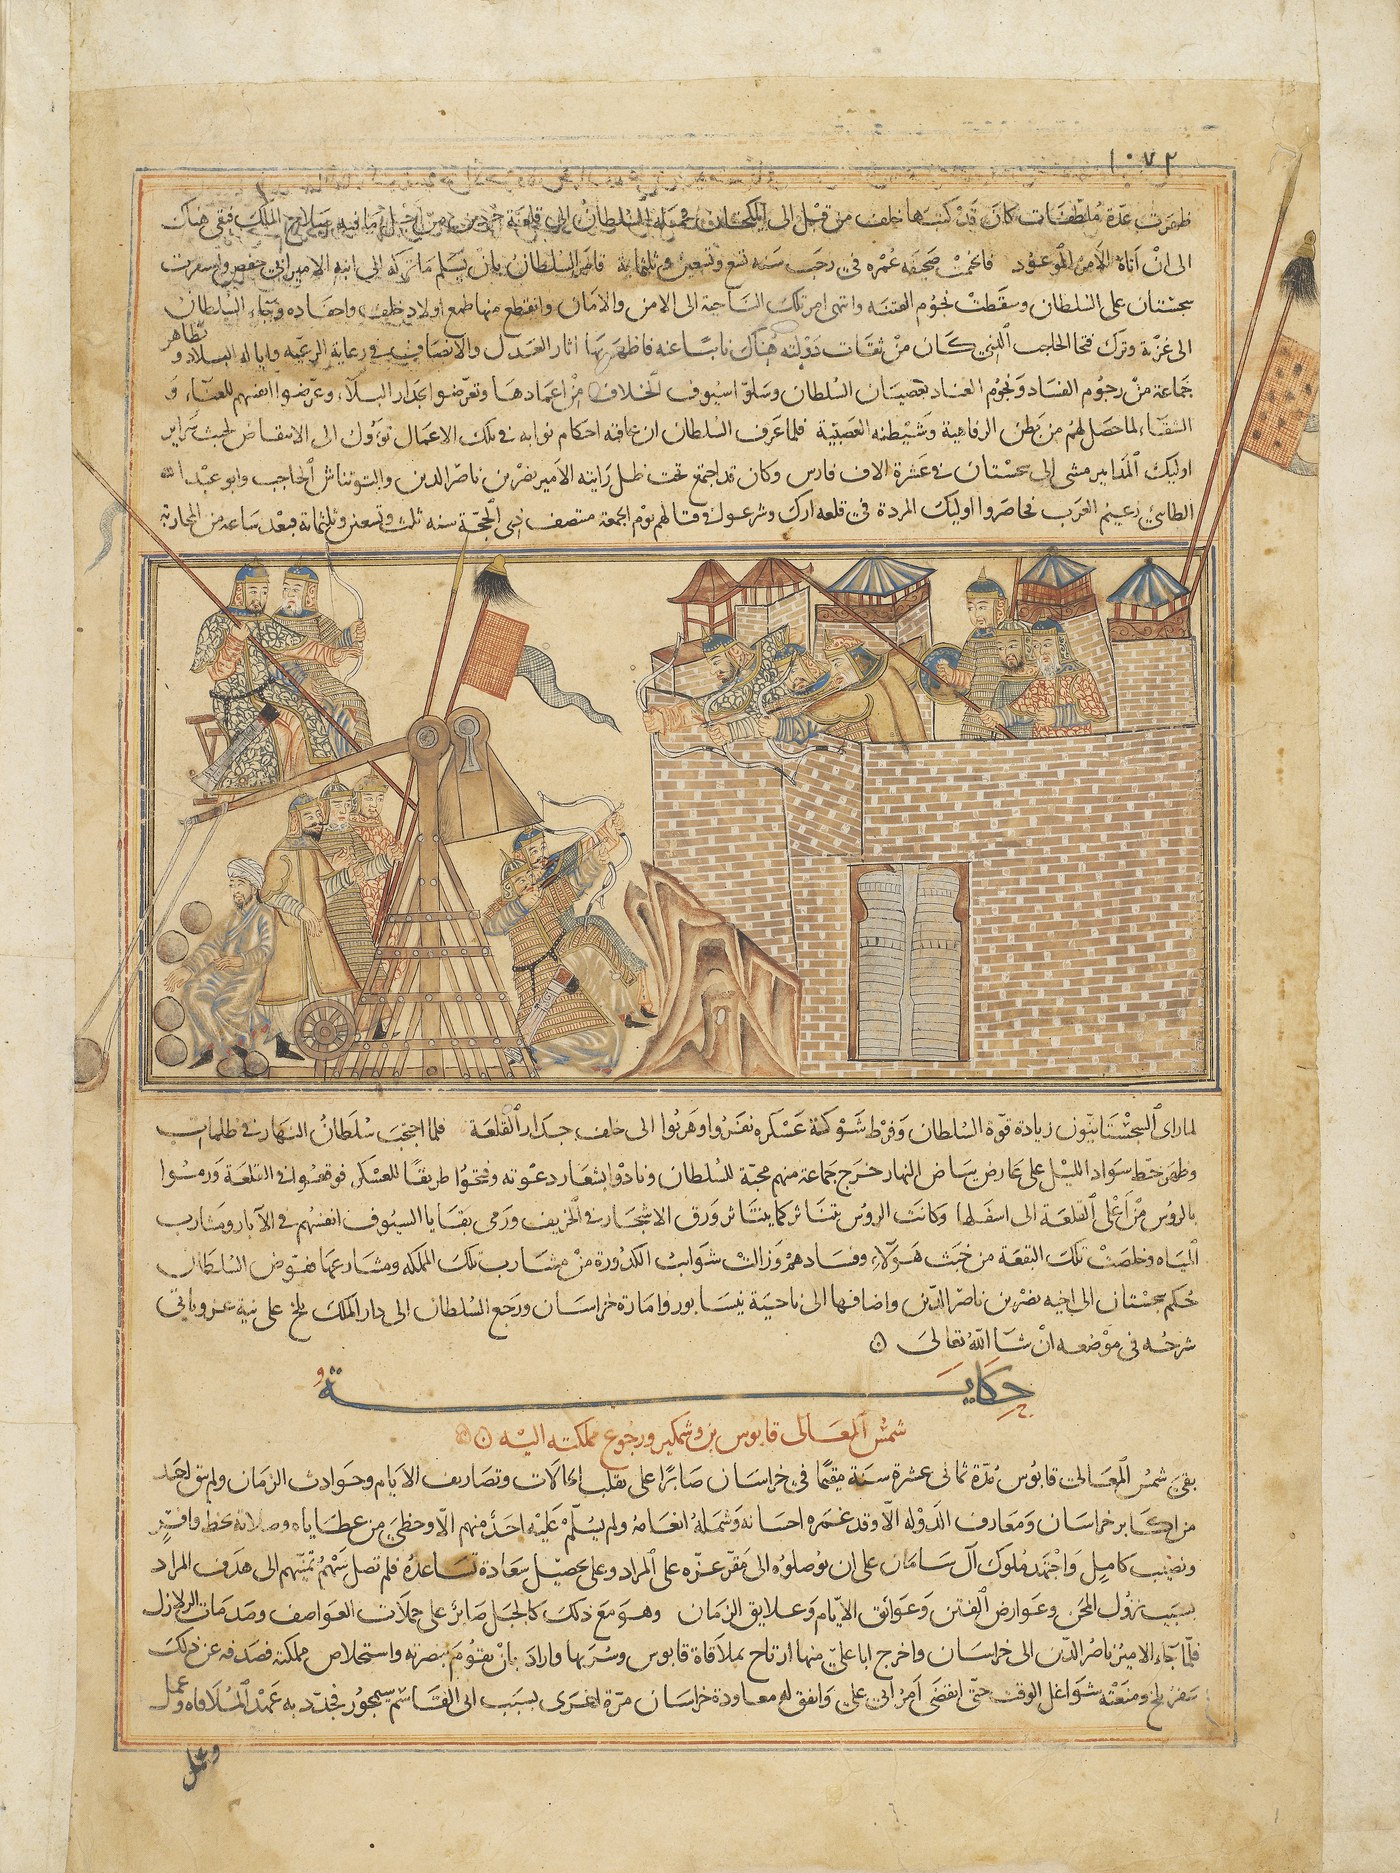 ١٠٧٢
ظهرت عدة ملطفات كان قد كتبها خلف من قبل الى ايلكخان فحمله السلطان الى قلعة جردين من اجل ما فيه صلاح الملك فبقى هناك
الى ان اتاه الامر الموعود فانختمت صحيفة عمره في رجب سنه تسع وتسعين وثلثماية فامر السلطان بان يسلم ما تركه الى ابنه الامير ابى حفص واستقرت
سجستان على السلطان وسقطت نجوم الفتنه وانتهى امر تلك الناحية الى الامن والامان وانقطع منها طمع اولاد خلف واحفاده وجاء السلطان
الى غزنة وترك فتحا الحاجب الذي كان من ثقات دولته هناك نايبا عنه فاظهر بها اثار العدل والانصاف في رعاية الرعيه واياله البلاد وتظاهر
جماعة من رجوم الفساد ونجوم العناد بعصيان السلطان وسلوا سيوف الخلاف من اغمادها وتعرضوا لمدار البلاء وعرضوا انفسهم للعناء و
الشقاء لما حصل لهم من بطر الرفاهية وشيطنه العصبية فلما عرف السلطان ان عاقبه احكام نوابه في تلك الاعمال تؤول الى الانتقاض لخبث سراير
اوليك المدابير مشى الى سجستان في عشرة الاف فارس وكان قد اجتمع تحت ظل رايته الامير نصر بن ناصر الدين والتونتاش الحاجب وابو عبد الله
الطائي زعيم العرب فحاصروا اوليك المردة في قلعه ارك وشرعوا في قتالهم يوم الجمعة منتصف ذي الحجة سنه ثلث وتسعين وثلثماية فبعد ساعة من المحاربة
لما راى السجستانيون زيادة قوة السلطان وفرط شوكة عسكره نفروا وهربوا الى خلف جدار القلعة فلما احتجب سلطان النهار في ظلمات
وظهر خط سواد الليل على عارض بياض النهار خرج جماعة منهم محبة للسلطان ونادوا بشعار دعوته وفتحوا طريقا للعسكر فوقعوا في القلعة ورموا
بالروس من اعلى القلعة الى اسفلها وكانت الروس تتناثر كما يتناثر ورق الاشجار في الخريف ورمى بقايا السيوف انفسهم في الآبار ومشارب
المياه وخلصت تلك البقعة من خبث هولاء وفسادهم وزالت شوايب الكدورة من مشارب تلك المملكه ومشارعها ففوض السلطان
حكم سجستان الى اخيه نصر بن ناصر الدين واضافها الى ناحية نيسابور وامارة خراسان ورجع السلطان الى دار الملك بلخ على نية غزو ياتي
شرحه في موضعه ان شا الله تعالى
حكاية
شمس المعالى قابوس بن وشمكير ورجوع مملكته اليه
بقى شمس المعالى قابوس مدة ثمانى عشرة سنة مقيما في خراسان صابرا على تقلب الحالات وتصاريف الايام وحوادث الزمان ولم يبق احد
من اكابر خراسان ومعارف الدولة الا وقد غمره احسانه وشمله انعامه ولم يسلم عليه احد منهم الا وحظى من عطاياه وصلاته بحظ وافر
ونصيب كامل واجتهد ملوك آل سامان على ان يوصلوه الى مقر عزه على المراد وعلى تحصيل سعادة تساعده فلم تصل سهم تمنيهم الى هدف المراد
بسبب نزول المحن وعوارض الفتن وعوايق الايام وعلايق الزمان وهو مع ذلك كالجبل صابر على حملات العواصف وصدمات الزلازل
فلما جاء الامير ناصر الدين الى خراسان واخرج ابا علي منها ارتاح بملاقاة قابوس وسر بها واراد بان يقوم بنصرته واستخلاص مملكته فصدفه عن ذلك
سفر بلخ ومنعته شواغل الوقت حتى انقضى امر ابي علي واتفق له معاودة خراسان مرة اخرى بسبب ابى القاسم سيمجور فجدد به عهد الملاقاه وعمل
وعمل